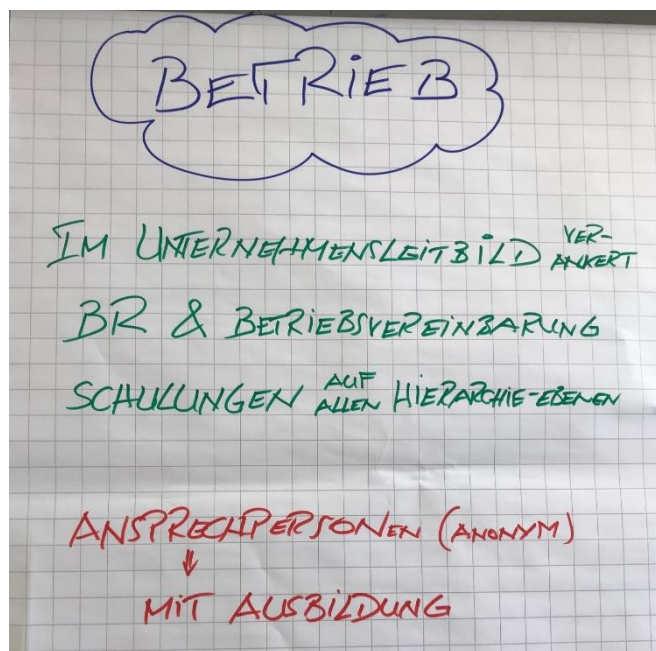 BETRIEB
IM UNTERNEHMENSLEITBILD VER-
ANKERT
BR & BETRIEBSVEREINBARUNG
SCHULUNGEN AUF
ALLEN HIERARCHIE-EBENEN
ANSPRECHPERSONEN (ANONYM)
↓
MIT AUSBILDUNG